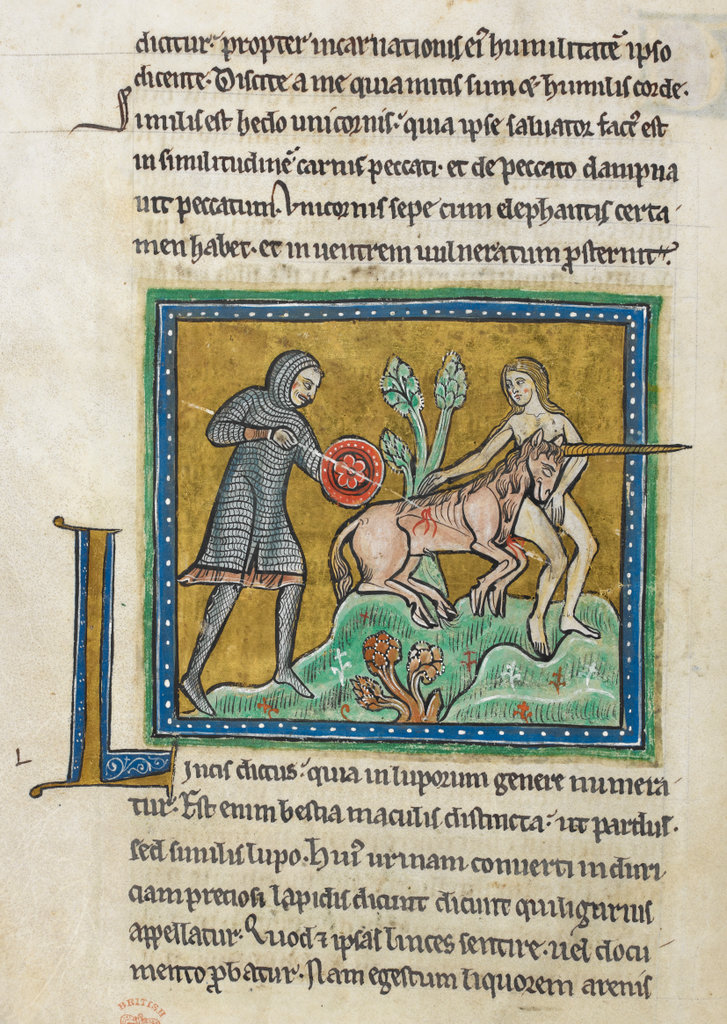 dicitur. propter incarnationis ei' humilitatē ipso
dicente. Discite a me quia mitis sum & humilis corde.
Similis est hedo unicornis. quia ipse saluator fact' est
in similitudinē carnis peccati. et de peccato dampna
uit peccatum. Vnicornis sepe cum elephantis certa
men habet. et in uentrem uulneratum ꝓsternit.
Lincis dictus. quia in luporum genere numera
tur. Est enim bestia maculis distincta. ut pardus.
sed similis lupo. Hui' urinam conuerti in duri
ciam preciosi lapidis dicunt dicunt qui ligurius
appellatur. Quod ⁊ ipsas linces sentire. uel docu
mento ꝓbatur. Nam egestum liquorem arenis
BRITISH